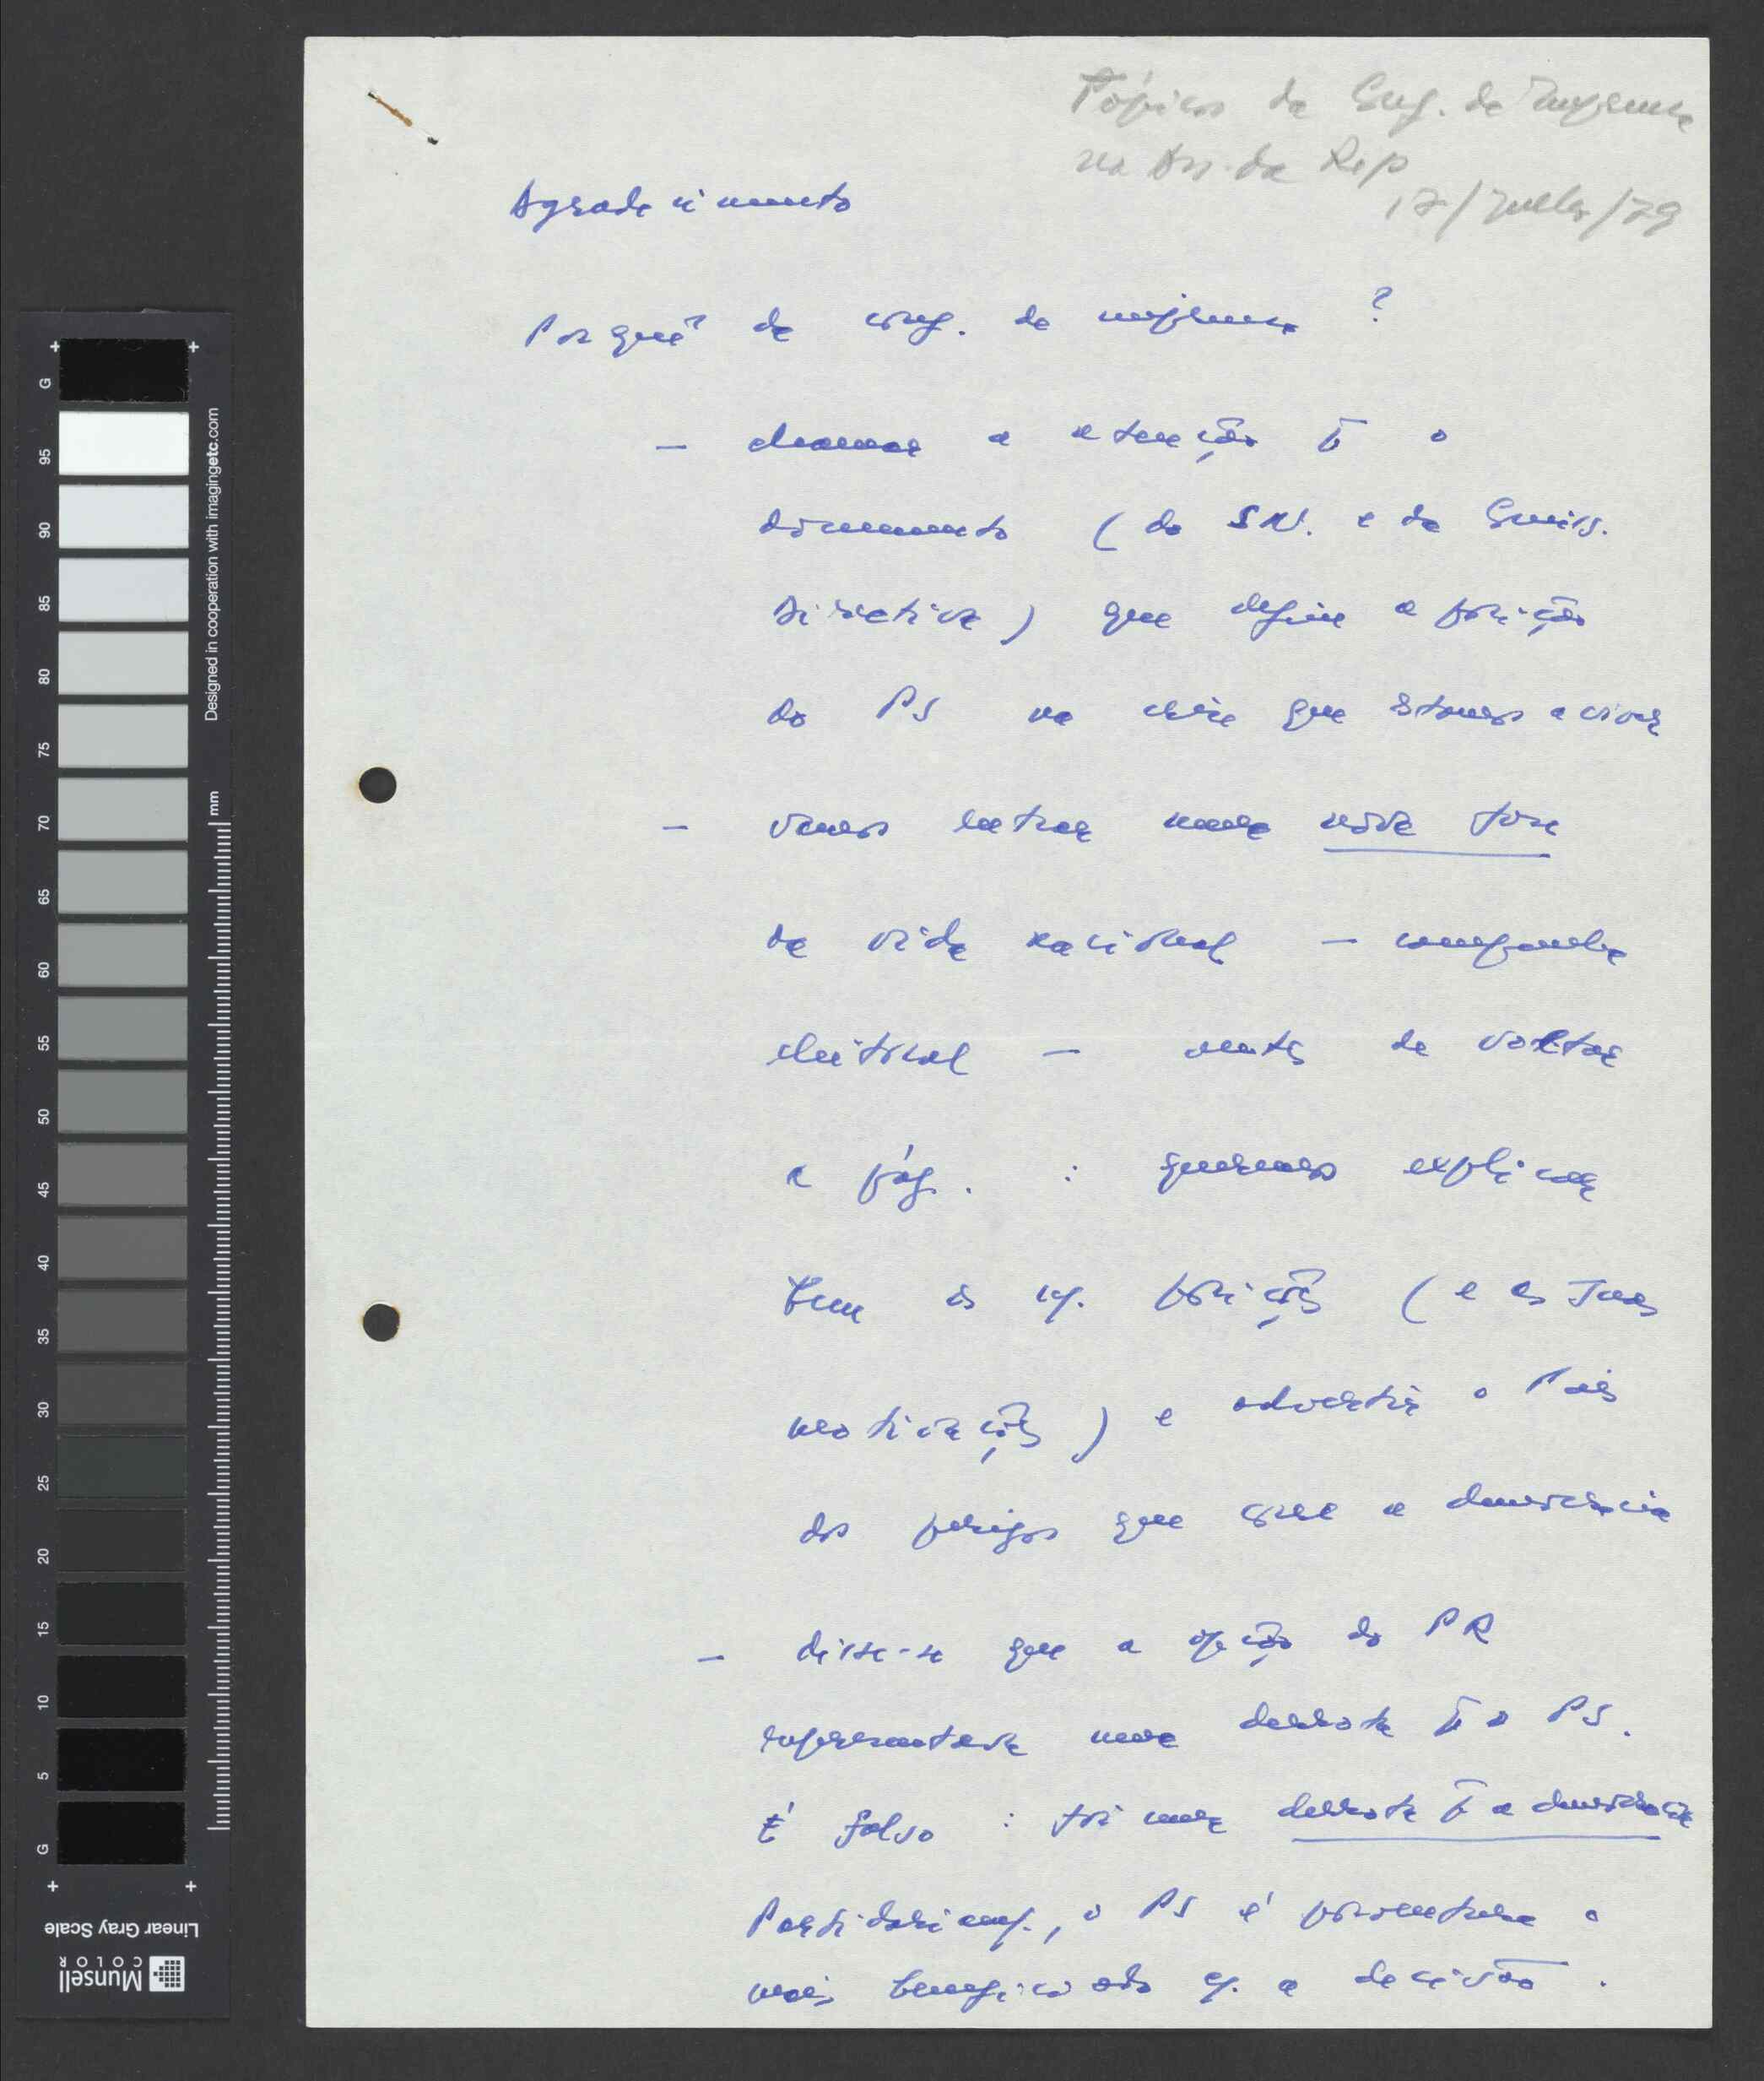 Tópicos da Conf. de Imprensa
na Ass. da Rep
17/Julho/79
Agradecimento
Porquê da conf. de imprensa ?
— chamar a atenção p̄ o
documento (do SN. e da Comiss.
Directiva) que define a posição
do PS na crise que estamos a viver
— vamos entrar numa nova fase
da vida nacional — campanha
eleitoral — antes de voltar
a pág. : queremos explicar
bem as n/. posições (e as suas
motivações) e advertir o País
dos perigos que corre a democracia
— disse-se que a opção do PR
representava uma derrota p̄ o PS.
É falso : foi uma derrota p̄ a democracia
Partidariam/., o PS é porventura o
mais beneficiado c/. a decisão.
G 95 90 85 80 75 70 65 60 55 50 45 40 35 30 25 20 15 10 5 G
mm
Designed in cooperation with imagingetc.com
Linear Gray Scale
Munsell
COLOR